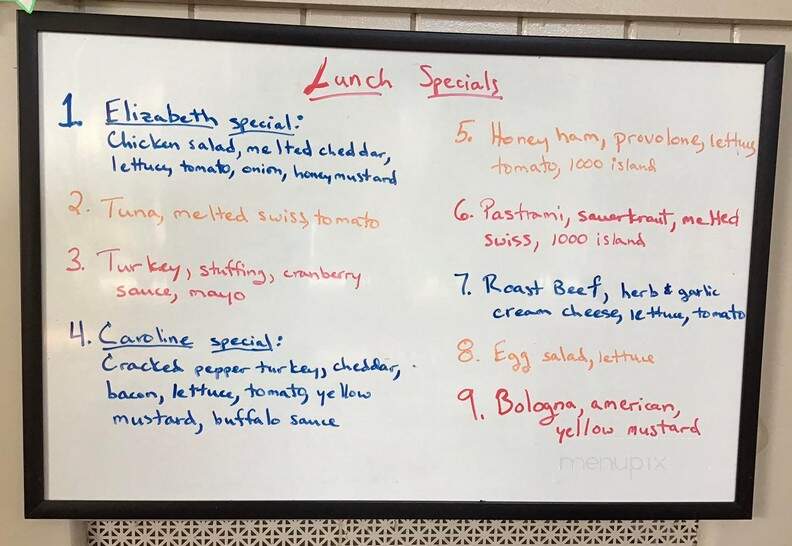 Lunch Specials
1. Elizabeth special:
Chicken salad, melted cheddar,
lettuce, tomato, onion, honey mustard
2. Tuna, melted swiss, tomato
3. Turkey, stuffing, cranberry
sauce, mayo
4. Caroline special:
Cracked pepper turkey, cheddar,
bacon, lettuce, tomato, yellow
mustard, buffalo sauce
5. Honey ham, provolone, lettuce,
tomato, 1000 island
6. Pastrami, sauerkraut, melted
swiss, 1000 island
7. Roast Beef, herb & garlic
cream cheese, lettuce, tomato
8. Egg salad, lettuce
9. Bologna, american,
yellow mustard
menupix